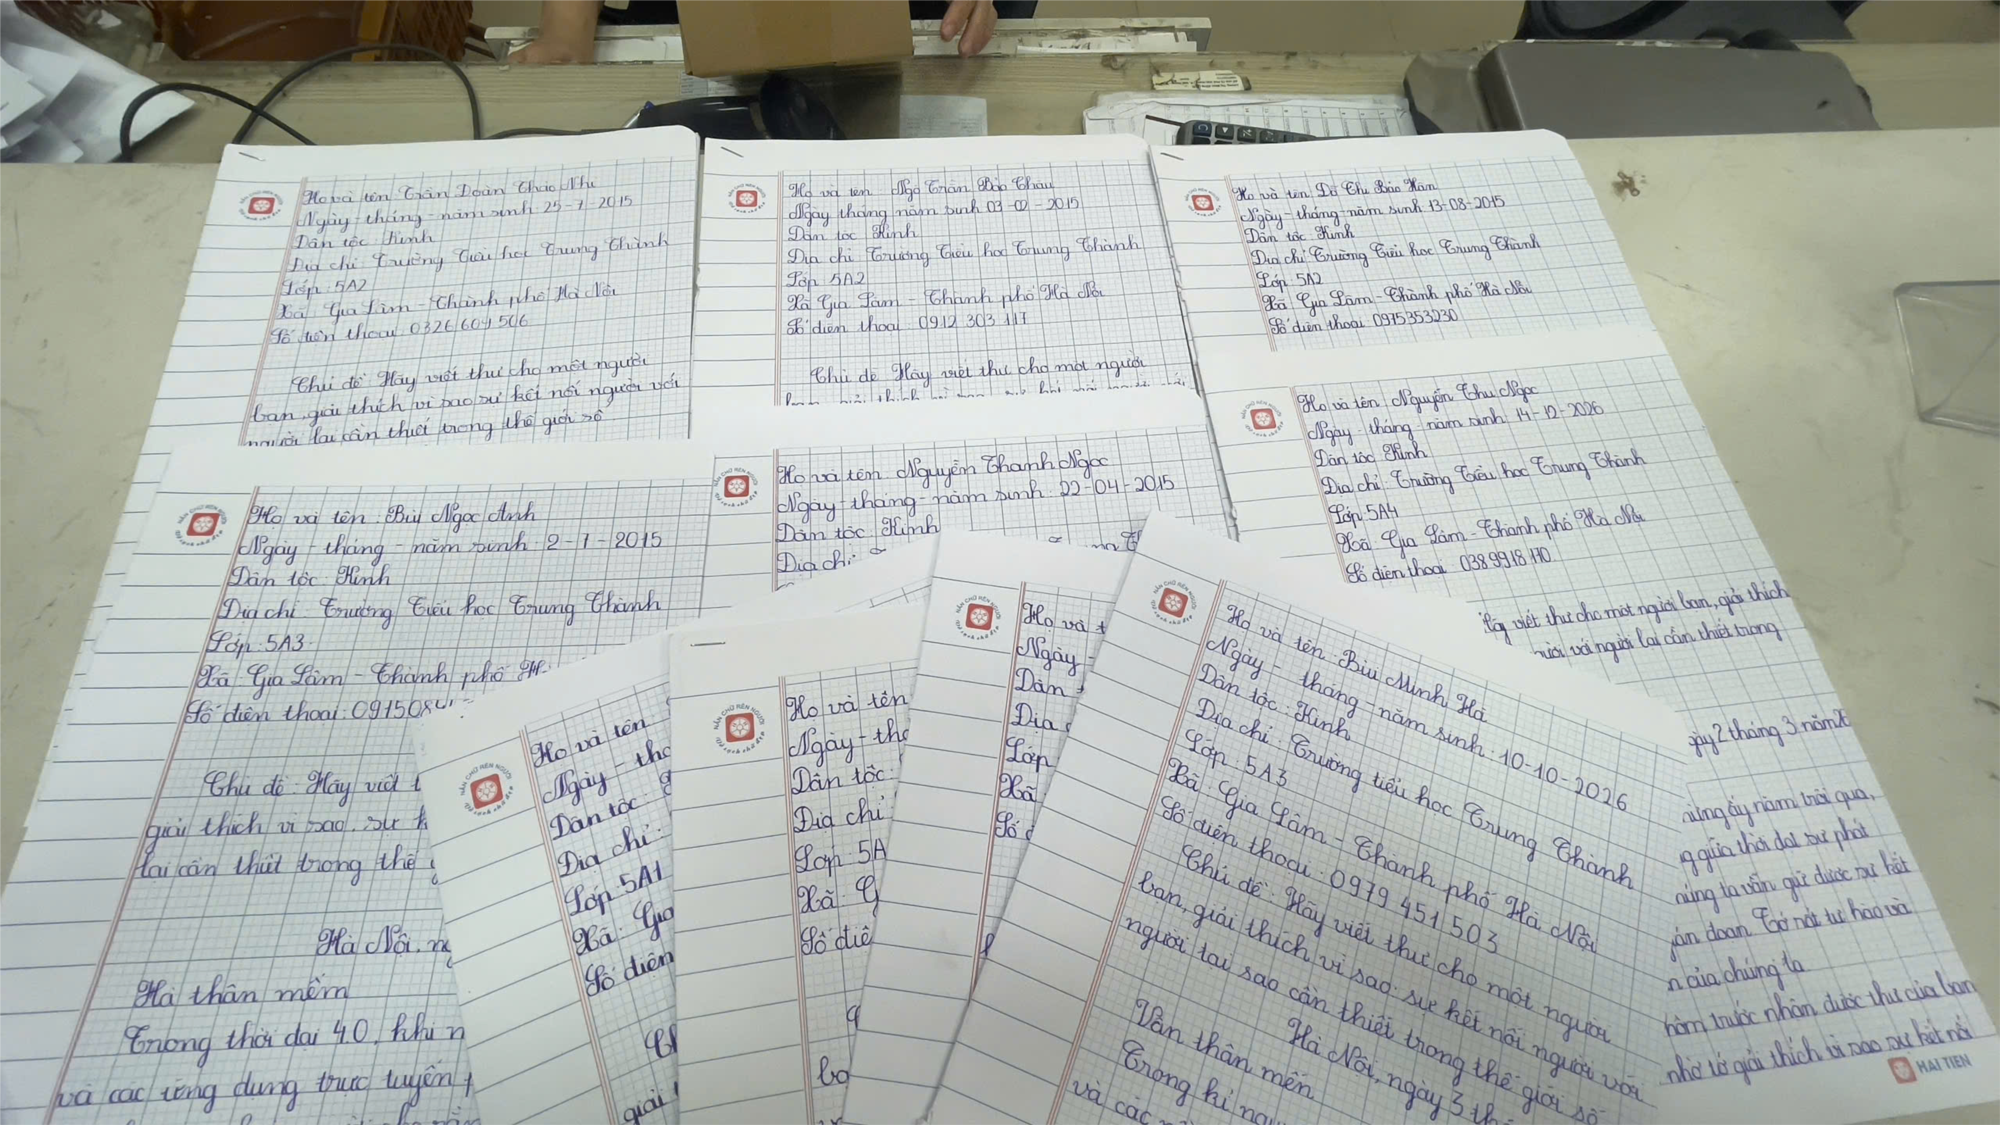 Họ và tên Trần Đoàn Thảo Nhi
Ngày - tháng - năm sinh 25 - 7 - 2015
Dân tộc Kinh
Địa chỉ Trường Tiểu học Trung Thành
Lớp : 5A2
Xã Gia Lâm - Thành phố Hà Nội
Số điện thoại 0326 604 506
Chủ đề Hãy viết thư cho một người
bạn, giải thích vì sao sự kết nối người với
người lại cần thiết trong thế giới số
Họ và tên Ngô Trần Bảo Châu
Ngày tháng năm sinh 03 - 02 - 2015
Dân tộc Kinh
Địa chỉ Trường Tiểu học Trung Thành
Lớp 5A2
Xã Gia Lâm - Thành phố Hà Nội
Số điện thoại 0912 303 117
Chủ đề Hãy viết thư cho một người
Họ và tên Đỗ Thị Bảo Hân
Ngày - tháng - năm sinh 13-08-2015
Dân tộc Kinh
Địa chỉ Trường Tiểu học Trung Thành
Lớp 5A2
Xã Gia Lâm - Thành phố Hà Nội
Số điện thoại 0975353230
Họ và tên : Bùi Ngọc Anh
Ngày - tháng - năm sinh : 2 - 7 - 2015
Dân tộc : Kinh
Địa chỉ : Trường Tiểu học Trung Thành
Lớp : 5A3
Xã : Gia Lâm - Thành phố
Số điện thoại : 09150
Chủ đề : Hãy viết
giải thích vì sao sự
lại cần thiết trong thế
Hà Nội,
Hà thân mến
Trong thời đại 4.0, khi
và các ứng dụng trực tuyến
Họ và tên : Nguyễn Thanh Ngọc
Ngày - tháng - năm sinh : 22 - 04 - 2015
Dân tộc : Kinh
Địa chỉ :
Họ và tên : Nguyễn Thu Ngọc
Ngày - tháng - năm sinh 14-12-2026
Dân tộc Kinh
Địa chỉ : Trường Tiểu học Trung Thành
Lớp 5A4
Xã : Gia Lâm - Thành phố Hà Nội
Số điện thoại 0389918170
viết thư cho một người bạn, giải thích
với người lại cần thiết trong
2 tháng 3 năm
ấy năm trôi qua,
giữa thời đại sự phát
ta vẫn giữ được sự kết
đoạn. Tớ rất tự hào và
của chúng ta
trước nhận được thư của bạn
nhờ tớ giải thích vì sao sự kết nối
HẢI TIẾN
Họ và tên
Ngày -
Dân tộc :
Địa chỉ :
Lớp : 5A1
Xã : Gia
Số điện
giải
Họ và tên
Ngày -
Dân tộc :
Địa chỉ
Lớp : 5A
Xã :
Số
Họ và
Ngày -
Dân
Địa
Lớp
Xã
Số
Họ và tên : Bùi Minh Hà
Ngày - tháng - năm sinh : 10-10-2026
Dân tộc : Kinh
Địa chỉ : Trường tiểu học Trung Thành
Lớp : 5A3
Xã : Gia Lâm - Thành phố Hà Nội
Số điện thoại : 0979 451 503
Chủ đề : Hãy viết thư cho một người
bạn, giải thích vì sao sự kết nối người với
người lại sao cần thiết trong thế giới số
Hà Nội, ngày 3
Vân thân mến
Trong kỉ
và các